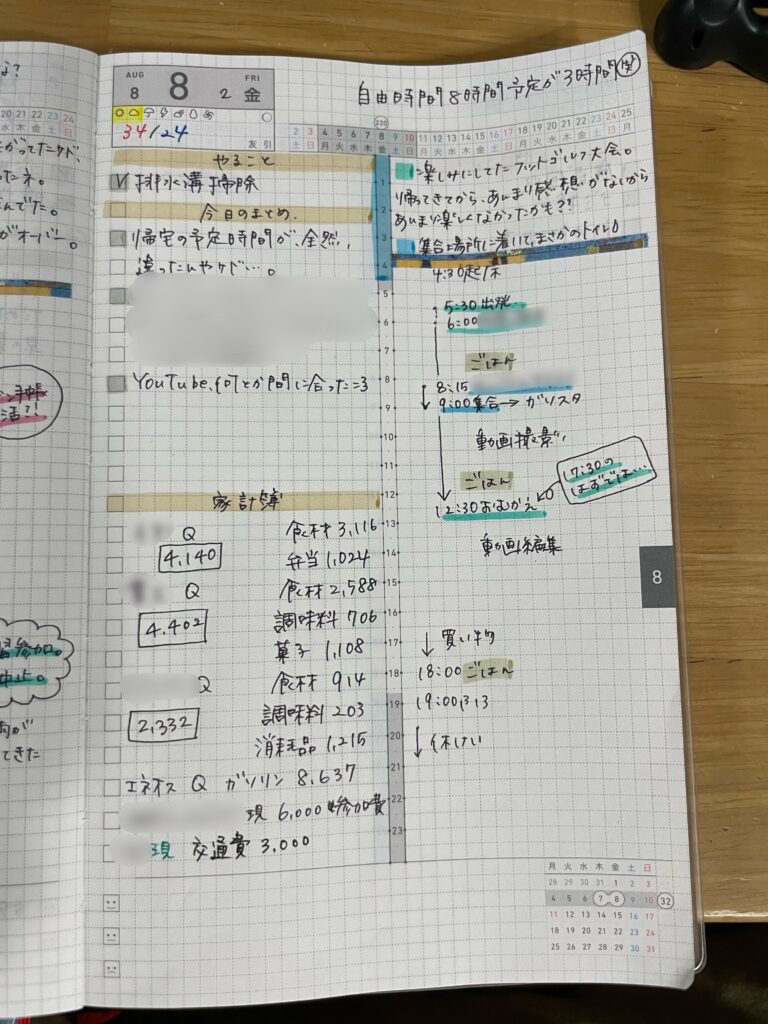 AUG 8 8 2 FRI 金
34/24
友引
自由時間8時間予定が3時間(笑)
220
2 3 4 5 6 7 8 9 10 11 12 13 14 15 16 17 18 19 20 21 22 23 24 25
土 日 月 火 水 木 金 土 日 月 火 水 木 金 土 日 月 火 水 木 金 土 日 月
やること
排水溝掃除
今日のまとめ
帰宅の予定時間が、全然、
違ったんやケド…。
YouTube、何とか間に合った=3
家計簿
Q 食材 3,116
4,140 弁当 1,024
Q 食材 2,588
4,402 調味料 706
菓子 1,108
Q 食材 914
2,332 調味料 203
消耗品 1,215
エネオス Q ガソリン 8,637
現 6,000 参加費
現 交通費 3,000
楽しみにしてたフットゴルフ大会。
帰ってきてから、あんまり感想がないから
あんまり楽しくなかったかも??
集合場所に着いて、まさかのトイレ
4:30起床
5:30 出発
6:00
ごはん
8:15
9:00集合→ガリスタ
動画撮影
ごはん
12:30おむかえ
17:30の
はずでは…
動画編集
買い物
18:00 ごはん
19:00
休けい
1
2
3
4
5
6
7
8
9
10
11
12
13
14
15
16
17
18
19
20
21
22
23
8
月 火 水 木 金 土 日
28 29 30 31 1 2 3
4 5 6 7 8 9 10 32
11 12 13 14 15 16 17
18 19 20 21 22 23 24
25 26 27 28 29 30 31
20 21 22 23 24
水 木 金 土 日
たネ。
んでた。
がオーバー。
手帳
活?!
参加。
中止。
肉が
てきた